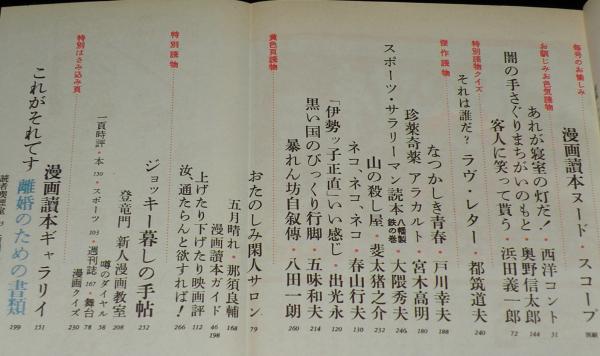 毎号のお愉しみ
漫画讀本ヌード・スコープ 別綴
お馴じみお色気讀物
あれが寝室の灯だ!・西洋コント 31
闇の手さぐりまちがいのもと・奥野信太郎 144
客人に笑って貰う・浜田義一郎 72
特別讀物クイズ
それは誰だ? ラヴ・レター・都筑道夫 240
傑作讀物
なつかしき青春・戸川幸夫 188
珍薬奇薬 アラカルト・宮木高明 180
スポーツ・サラリーマン読本 八幡製鉄の巻・大隈秀夫 246
山の殺し屋・斐太猪之介 232
ネコ、ネコ、ネコ・春山行夫 132
「伊勢ッ子正直」いい感じ・出光永 120
黒い国のびっくり行脚・五味和夫 214
暴れん坊自叙傳・八田一朗 260
黄色頁讀物
おたのしみ閑人サロン 79
五月晴れ・那須良輔 168
漫画讀本ガイド 46 198
上げたり下げたり映画評 112
汝、通たらんと欲すれば! 266
特別讀物
ジョッキー暮しの手帖 252
登竜門 新人漫画教室 208
噂のダイヤル 38
一頁時評・本 130・スポーツ 103・週刊誌 167・舞台 78
漫画クイズ 230
特別はさみ込み頁
漫画讀本ギャラリイ 151
これがそれです 離婚のための書類 199